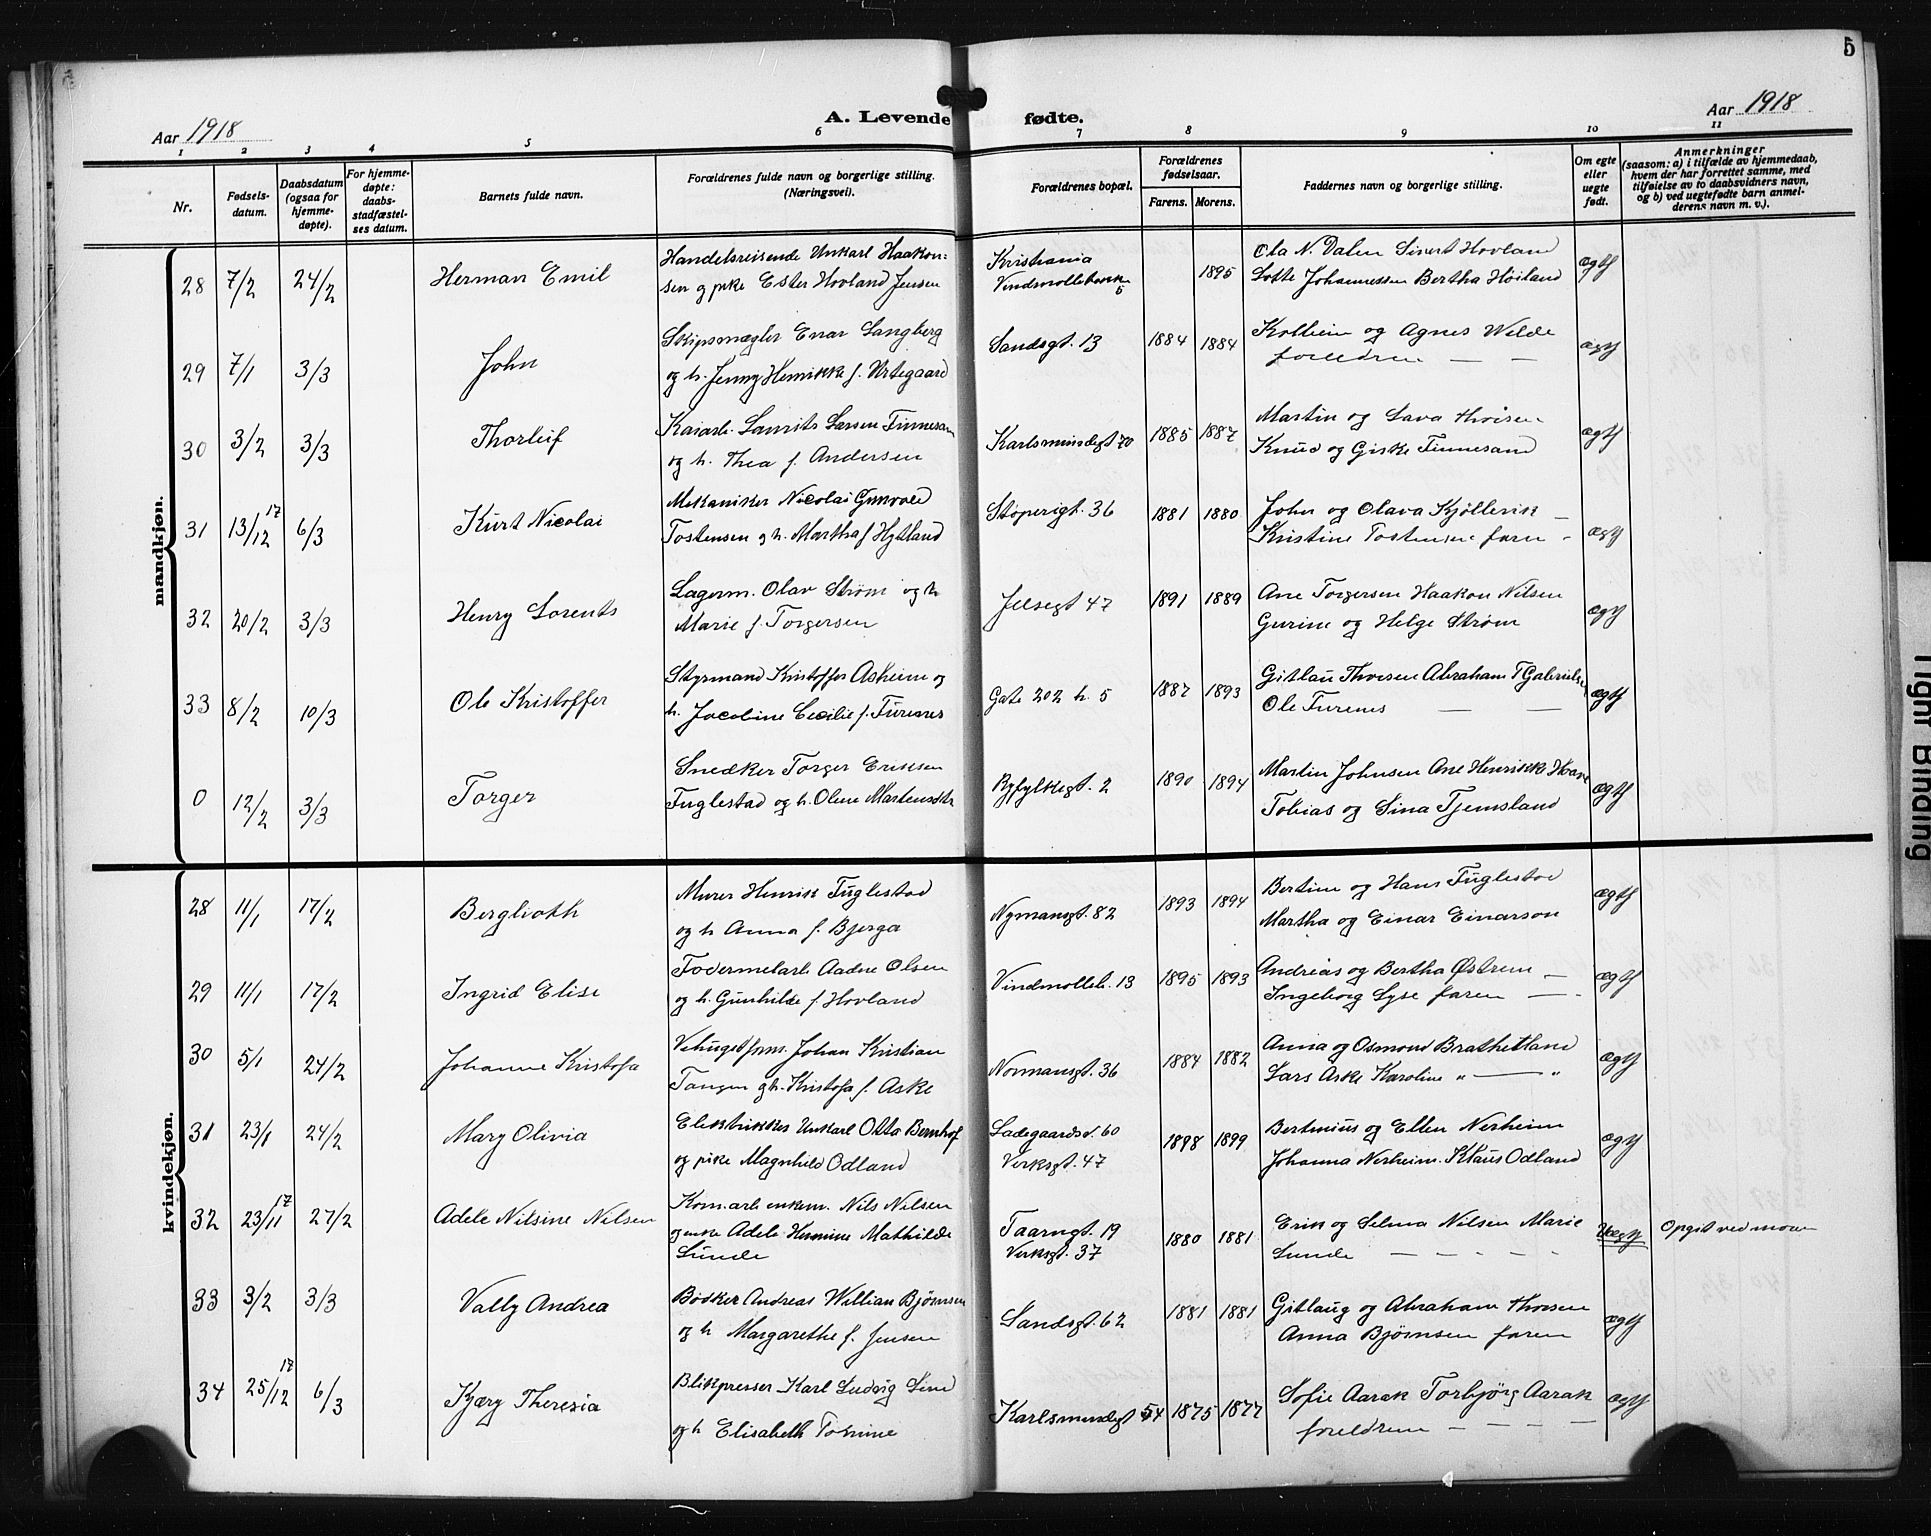 5
Aar 1918
A. Levende fødte.
Aar 1918
1 2 3 4 5 6 7 8 9 10 11
Nr.
Fødsels-
datum.
Daabsdatum
(ogsaa for
hjemme-
døpte).
For hjemme-
døpte:
daabs-
stadfæstel-
ses datum.
Barnets fulde navn.
Forældrenes fulde navn og borgerlige stilling.
(Næringsvei).
Forældrenes bopæl.
Forældrenes
fødselsaar.
Farens. Morens.
Faddernes navn og borgerlige stilling.
Om egte
eller
uegte
født.
Anmerkninger
(saasom: a) i tilfælde av hjemmedaab,
hvem der har forrettet samme, med
tilføielse av to daabsvidners navn,
og b) ved uegtefødte barn anmel-
derens navn m. v.).
mandkjøn.
28 7/2 24/2 Herman Emil
Handelsreisende Unkarl Haakon-
sen og pike Ester Hovland Jensen
Kristiania
5
1895
Ola N. Dalen Sivert Hovland
Lotte Johannessen Bertha Høiland
ægtf
29 7/1 3/3 John
Skipsmægler Enar Langberg
og h. Jenny Henrikke f. Urtegaard
Sandsgt. 13
1884 1884
Kolbein og Agnes Welde
foreldrene — —
ægtf
30 3/2 3/3 Thorleif
Kaiarb. Laurits Larsen Finnesand
og h. Thea f. Andersen
Karlsmindegt 70
1885 1887
Martin og Lava Thorsen
Knud og Giske Finnesand
ægtf
31 13/12 17 6/3 Kurt Nicolai
Mekaniker Nicolai Gunvald
Tostensen og h. Martha f Hytland
Støperigt. 36
1881 1880
John og Olava Kjøllevik —
Kristine Tostensen faren -
ægtf
32 20/2 3/3 Henry Lorents
Lagerm. Olav Strøm og h
Marie f. Torgersen
Jelsegt 47
1891 1889
Ane Torgersen Haakon Nilsen
Gurine og Helge Strøm
ægtf
33 8/2 10/3 Ole Kristoffer
Styrmand Kristoffer Asheim og
h. Jacobine Cecilie f. Furenes
Gate 202 h. 5
1887 1893
Gitlau Thorsen Abraham T Gabrielsen
Ole Furenes — —
ægtf
0 12/2 3/3 Torger
Snedker Torger Eriksen
Fuglestad og h. Olene Martensdtr
Ryfylkegt. 2
1890 1894
Martin Johnsen Ane Henrikke Haave
Tobias og Sina Tjemsland
ægtf
kvindekjøn.
28 11/1 17/2 Berglioth
Murer Henrik Fuglestad
og h Anna f. Bjerga
Nymansgt. 82
1893 1894
Bertine og Hans Fuglestad
Martha og Einar Einarson
ægtf
29 11/1 17/2 Ingrid Elise
Fodermelarb Aadne Olsen
og h. Gunhilde f Hovland
Vindmølleb. 13
1895 1893
Andreas og Bertha Østrem —
Ingeborg Lyse faren — -
ægtf
30 5/1 24/2 Johanne Kristofa
Johan Kristian
Tangen og h. Kristofa f. Aske
Normansgt. 36
1884 1882
Anna og Osmond Brathetland
Lars Aske Karoline " — "
ægtf
31 23/1 24/2 Mary Olivia
Elektrikker Unkarl Otto Bernhof
og pike Magnhild Odland
Ladegaardsv. 60
Verksgt. 47
1898 1899
Bertinius og Ellen Nerheim
Johanna Nerheim. Klaus Odland
ægtf
32 23/11 17 27/2 Adele Nilsine Nilsen
Kom.arb enkem. Nils Nilsen
og enke Adele Hermine Mathilde
Lunde
Taarngt. 19
Verksgt. 37
1880 1881
Erik og Selma Nilsen Marie
Lunde — — - - -
Uægtf
Opgit ved moren
33 3/2 3/3 Vally Andrea
Bødker Andreas Willian Bjørnsen
og h Margarethe f. Jensen
Sandsgt. 62
1881 1881
Gitlaug og Abraham Thorsen
Anna Bjørnsen faren
ægtf
34 25/12 17 6/3 Kjæry Theresia
Blikpresser Karl Ludvig Lind
og h Elisabeth Tomine
Karlsmindegt 54
1875 1877
Sofie Aarak Torbjørg Aarak
foreldrene — — — —
ægtf
Tight Binding